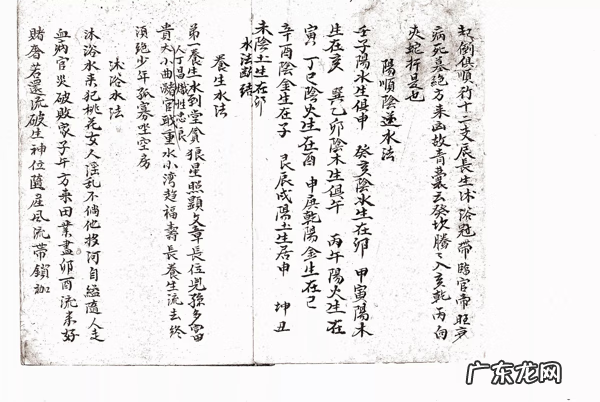 起例俱順行十二支辰長生沐浴冠帶臨官帝旺衰
病死墓絕方来凶故青囊云癸坎勝〻入亥乾丙向
夾蛇折是也
陽順陰逆水法
壬子陽水生俱申 癸亥陰水生在卯 甲寅陽木
生在亥 巽乙卯陰木生俱午 丙午陽火生在
寅 丁巳陰火生在酉 申庚乾陽金生在巳
辛酉陰金生在子 艮辰戌陽土生居申 坤丑
未陰土生在卯
水法斷訣
養生水法
第一養生水到堂貪狼星照顯文章長位兒孫多富
貴人丁昌熾性忠良
大小曲踏官職重水小湾超福壽長養生流去終
須絕少年孤寡坐空房
沐浴水法
沐浴水来犯桃花女人淫乱不倘他投河自縊隨人走
血病官灾破敗家子午方来田業盡卯酉流来好
賭奢若還流破生神位隨屋風流帶鎖枷
广东龙网